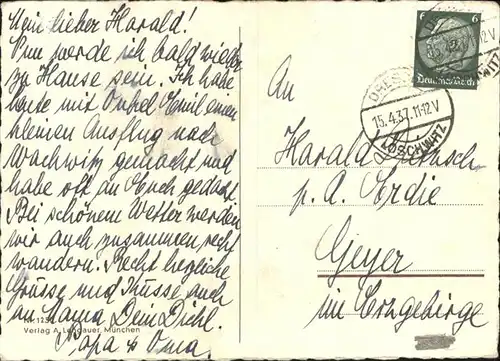 Mein lieber Harald!
Nun werde ich bald wieder
zu Hause sein. Ich habe
heute mit Onkel Emil einen
kleinen Ausflug nach
Wachwitz gemacht und
habe oft an Euch gedacht.
Bei schönem Wetter werden
wir auch zusammen recht
wandern. Recht herzliche
Grüsse und Küsse auch
an Mama Dein Dichl.
Papa & Oma.
Verlag A. Lengauer, München
6
Deutsches Reich
15.4.37.11-12V
LOSCHWITZ
An
Harald
p. A. Erdie
Geyer
im Erzgebirge